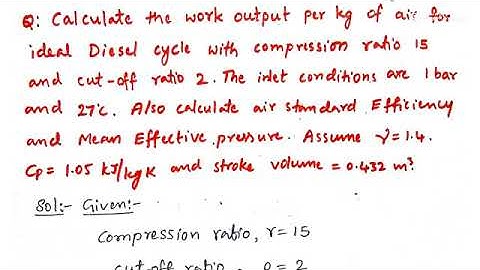 Q: Calculate the work output per kg of air for
ideal Diesel cycle with compression ratio 15
and cut-off ratio 2. The inlet conditions are 1 bar
and 27°C. Also calculate air standard Efficiency
and Mean Effective pressure. Assume γ=1.4.
Cp = 1.05 kJ/kgK and stroke volume = 0.432 m³.
Sol:- Given:-
Compression ratio, r = 15
cut-off ratio, ρ = 2